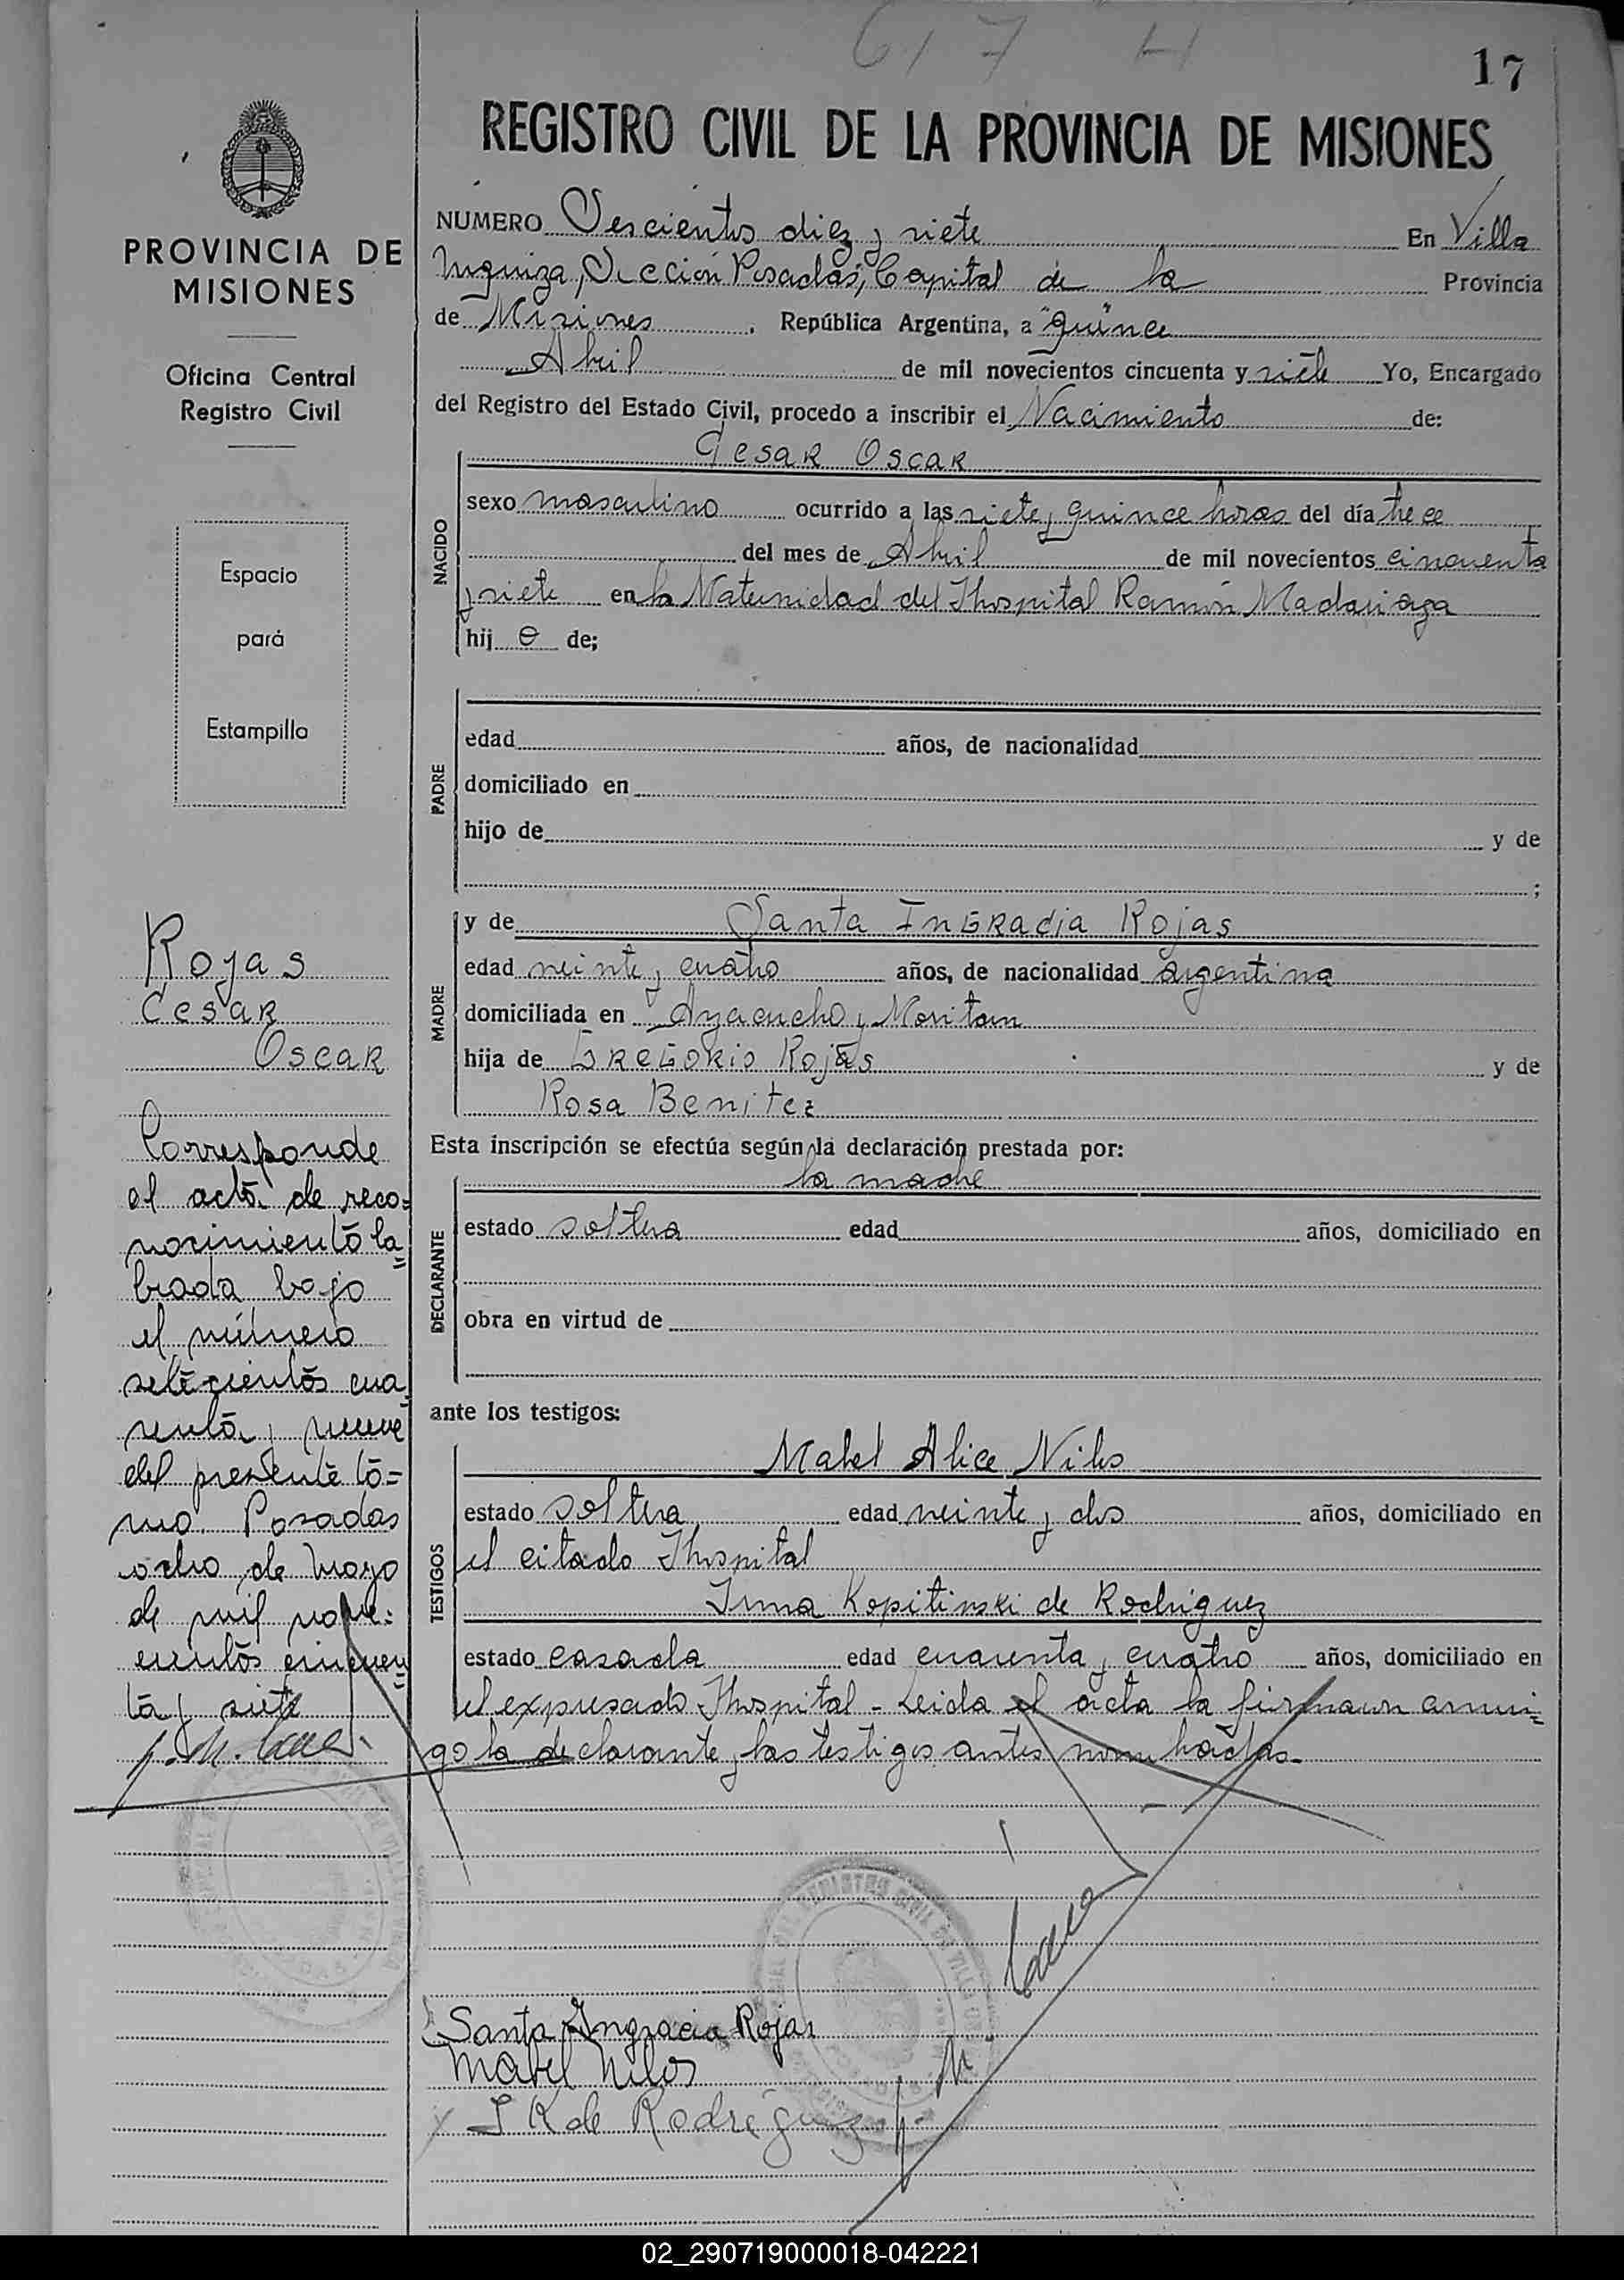 617 H
17
REGISTRO CIVIL DE LA PROVINCIA DE MISIONES
PROVINCIA DE
MISIONES
Oficina Central
Registro Civil
Espacio
pará
Estampilla
Rojas
Cesar
Oscar
Corresponde
el acta de reco=
nocimiento la=
brada bajo
el número
setecientos cua
renta y nueve
del presente to=
mo. Posadas
ocho de mayo
de mil nove=
cientos cincuen=
ta y siete
NUMERO Seiscientos diez y siete En Villa
Urquiza, Sección Posadas, Capital de la Provincia
de Misiones, República Argentina, a quince
Abril de mil novecientos cincuenta y siete Yo, Encargado
del Registro del Estado Civil, procedo a inscribir el Nacimiento de:
NACIDO
Cesar Oscar
sexo masculino ocurrido a las siete y quince horas del día trece
del mes de Abril de mil novecientos cincuenta
y siete en la Maternidad del Hospital Ramón Madariaga
hij o de;
PADRE
edad años, de nacionalidad
domiciliado en
hijo de y de
;
MADRE
y de Santa Ingracia Rojas
edad veinte y cuatro años, de nacionalidad argentina
domiciliada en Ayacucho y Moritan
hija de Gregorio Rojas y de
Rosa Benitez
Esta inscripción se efectúa según la declaración prestada por:
DECLARANTE
la madre
estado soltera edad años, domiciliado en
obra en virtud de
ante los testigos:
TESTIGOS
Mabel Alice Nilos
estado soltera edad veinte y dos años, domiciliado en
el citado Hospital
Irma Kopitinski de Rodriguez
estado casada edad cuarenta y cuatro años, domiciliado en
el expresado Hospital - Leida el acta la firmaron conmi=
go la declarante y las testigos antes nombradas-
Santa Ingracia Rojas
Mabel Nilos
I K de Rodriguez
02_290719000018-042221